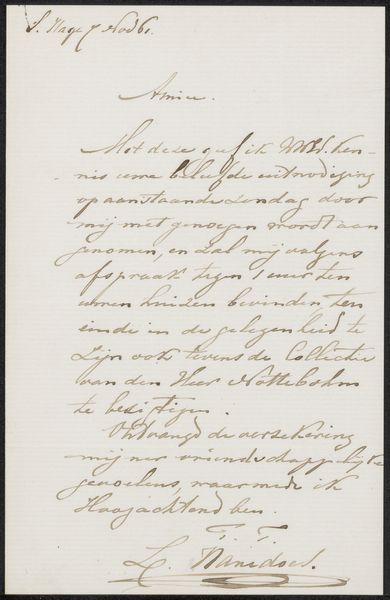 S. Hage 7 Nov 61.
Amice.
Met deze geef ik UWEd. ken-
nis uwe beleefde uitnodiging
op aanstaande Zondag door
mij met genoegen wordt aan
genomen, en zal mij volgens
afspraak tegen 1 uur ten
uwen huizen bevinden ten
einde in de gelegenheid te
zijn ook tevens de Collectie
van den Heer Nottebohm
te bezigtigen.
Ontvangd de verzekering
mijner vriendschappelijke
gevoelens, waarmede ik
Hoogachtend ben.
T. T.
L.